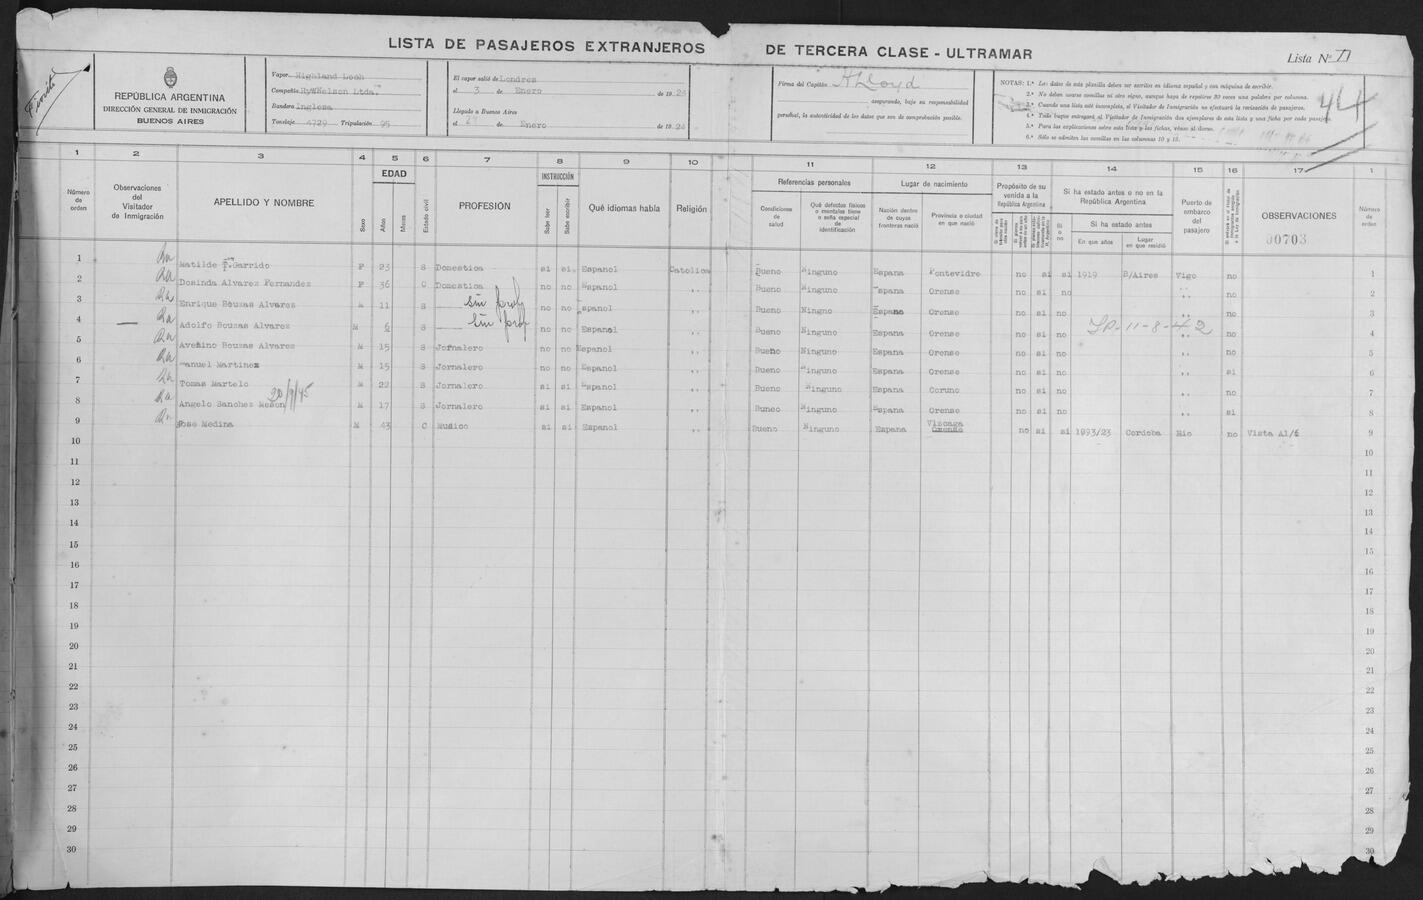 LISTA DE PASAJEROS EXTRANJEROS DE TERCERA CLASE - ULTRAMAR
Lista Nº 71
REPÚBLICA ARGENTINA
DIRECCIÓN GENERAL DE INMIGRACIÓN
BUENOS AIRES
Vapor Highland Loch
Compañía Hy&WNelson Ltda.
Bandera Inglesa
Tonelaje 4729 Tripulación 95
El vapor salió de Londres
el 3 de Enero de 1924
Llegado a Buenos Aires
el de Enero de 1924
Firma del Capitán ALloyd
asegurando, bajo su responsabilidad
personal, la autenticidad de los datos que son de comprobación posible.
NOTAS: 1.ª Los datos de esta planilla deben ser escritos en idioma español y con máquina de escribir.
2.ª No deben usarse comillas ni otro signo, aunque haya de repetirse 30 veces una palabra por columna.
3.ª Cuando una lista esté incompleta, el Visitador de Inmigración no efectuará la revisación de pasajeros.
4.ª Todo buque entregará al Visitador de Inmigración dos ejemplares de esta lista y una ficha por cada pasajero.
5.ª Para las explicaciones sobre esta lista y las fichas, véase al dorso.
6.ª Sólo se admiten las comillas en las columnas 10 y 15.
44
1 2 3 4 5 6 7 8 9 10 11 12 13 14 15 16 17 1
Número de orden
Observaciones del Visitador de Inmigración
APELLIDO Y NOMBRE
Sexo
EDAD
Años
Meses
Estado civil
PROFESIÓN
INSTRUCCIÓN
Sabe leer
Sabe escribir
Qué idiomas habla
Religión
Referencias personales
Condiciones de salud
Qué defectos físicos o mentales tiene o seña especial de identificación
Lugar de nacimiento
Nación dentro de cuyas fronteras nació
Provincia o ciudad en que nació
Propósito de su venida a la República Argentina
Si ha estado antes o no en la República Argentina
Si o no
Si ha estado antes
En que años
Lugar en que residió
Puerto de embarco del pasajero
OBSERVACIONES
00703
Número de orden
1 Matilde F. Garrido F 23 S Domestica si si Espanol Catolica Bueno Ninguno Espana Pontevidre no si si 1919 B/Aires Vigo no 1
2 Dosinda Alvarez Fernandez F 36 C Domestica no no Espanol ,, Bueno Ninguno Espana Orense no si no ,, no 2
3 Enrique Bouzas Alvarez M 11 S sin prof no no Espanol ,, Bueno Ningno Espano Orense no si no ,, no 3
4 Adolfo Bouzas Alvarez M 6 S sin prof no no Espanol ,, Bueno Ninguno Espana Orense no si no LP-11-8-42 ,, no 4
5 Avelino Bouzas Alvarez M 15 S Jornalero no no Espanol ,, Bueno Ninguno Espana Orense no si no ,, no 5
6 Manuel Martinez M 15 S Jornalero no no Espanol ,, Bueno Ninguno Espana Orense no si no ,, si 6
7 Tomas Martelo M 22 S Jornalero si si Espanol ,, Bueno Ninguno Espana Coruno no si no ,, no 7
20/9/45
8 Angelo Sanchez Meson M 17 S Jornalero si si Espanol ,, Buneo Ninguno Espana Orense no si no ,, si 8
9 Jose Medina M 43 C Musico si si Espanol ,, Bueno Ninguno Espana Viscaga Orense no si si 1893/23 Cordoba Rio no Vista Al/6 9
10 10
11 11
12 12
13 13
14 14
15 15
16 16
17 17
18 18
19 19
20 20
21 21
22 22
23 23
24 24
25 25
26 26
27 27
28 28
29 29
30 30